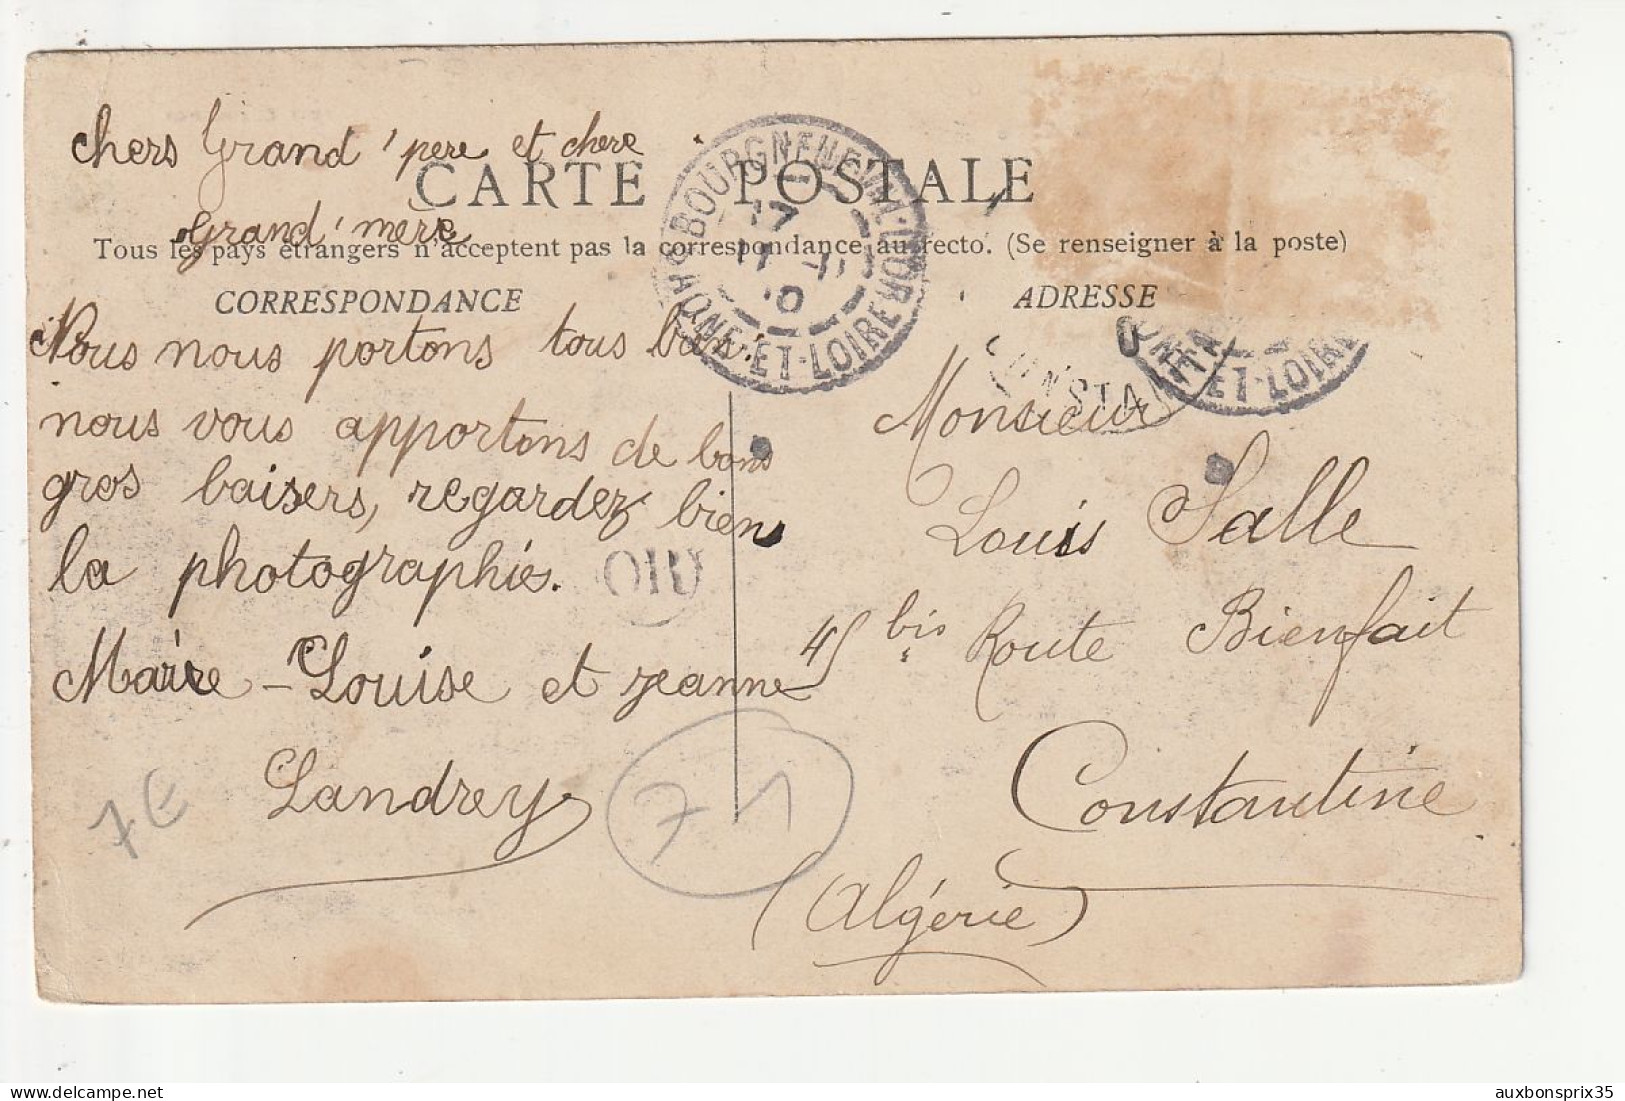 chers Grand'père et chère
Grand'mère
CARTE POSTALE
Tous les pays étrangers n'acceptent pas la correspondance au recto. (Se renseigner à la poste)
CORRESPONDANCE
ADRESSE
Nous nous portons tous bien.
nous vous apportons de bons
gros baisers, regardez bien
la photographies.
Marie-Louise et jeanne
Landrey
Monsieur
Louis Salle
45 bis Route Bienfait
Constantine
(Algérie)
OR
71
7E
ET-LOIRE
auxbonsprix35